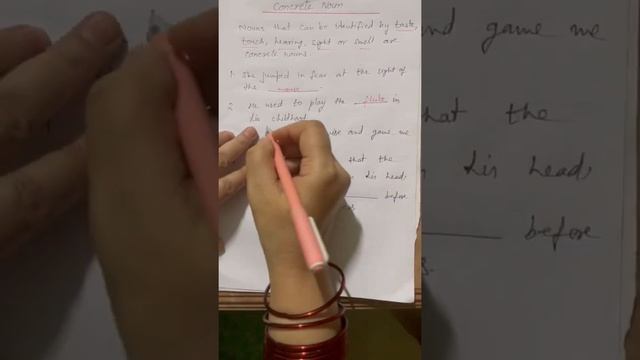 Concrete Noun
Nouns that can be identified by taste,
touch, hearing, sight or smell are
concrete nouns.
1. She jumped in fear at the sight of
the mouse.
2. He used to play the flute in
his childhood.
and gave me
that the
his head.
before
and game me
that the
his head,
before